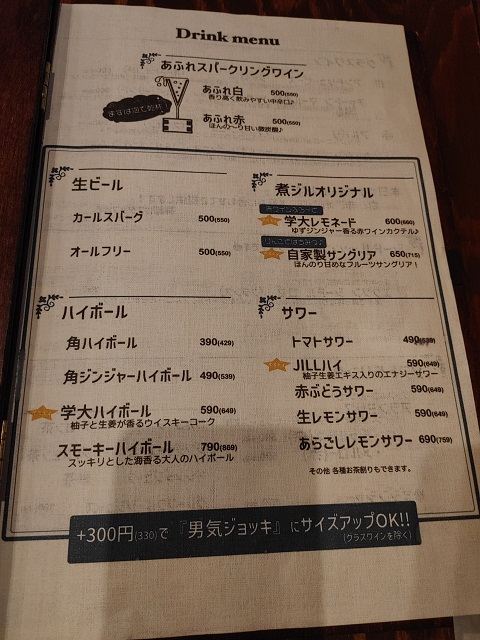 Drink menu
あふれスパークリングワイン
まずは泡で乾杯!
あふれ白 500(550)
香り高く飲みやすい中辛口♪
あふれ赤 500(550)
ほんの〜り甘い微炭酸♪
生ビール
カールスバーグ 500(550)
オールフリー 500(550)
煮ジルオリジナル
学大レモネード 600(660)
ゆずジンジャー香る赤ワインカクテル♪
自家製サングリア 650(715)
ほんのり甘めなフルーツサングリア!
ハイボール
角ハイボール 390(429)
角ジンジャーハイボール 490(539)
学大ハイボール 590(649)
柚子と生姜が香るウイスキーコーク
スモーキーハイボール 790(869)
スッキリとした海香る大人のハイボール
サワー
トマトサワー 490(539)
JILLハイ 590(649)
柚子生姜エキス入りのエナジーサワー
赤ぶどうサワー 590(649)
生レモンサワー 590(649)
あらごしレモンサワー 690(759)
その他 各種お茶割りもできます。
+300円(330)で『男気ジョッキ』にサイズアップOK!!
(グラスワインを除く)